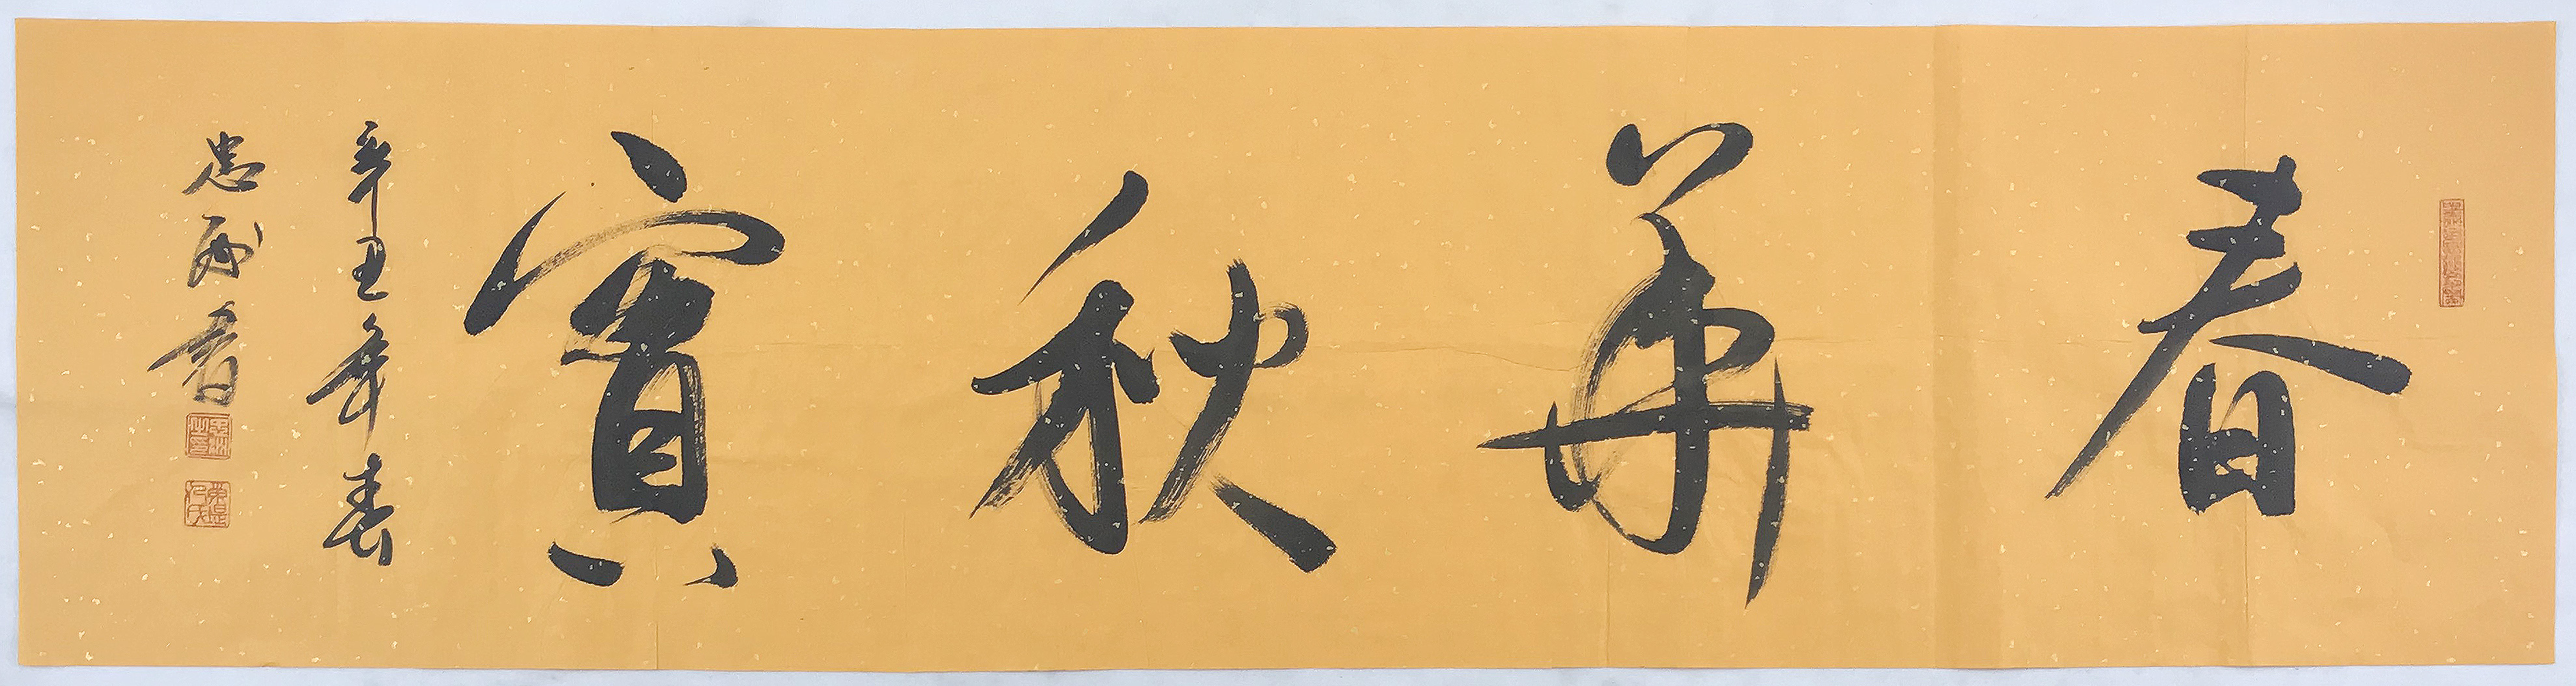 春華秋實
辛丑年春
忠州書